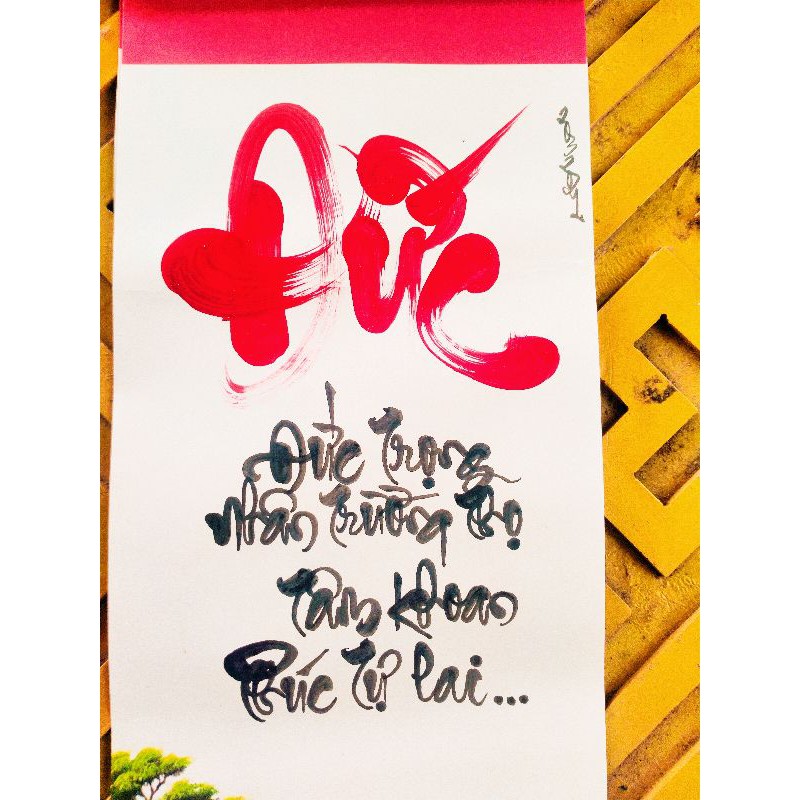 Đức
Đức trọng
nhân trường thọ
Tâm khoan
Phúc tự lai...